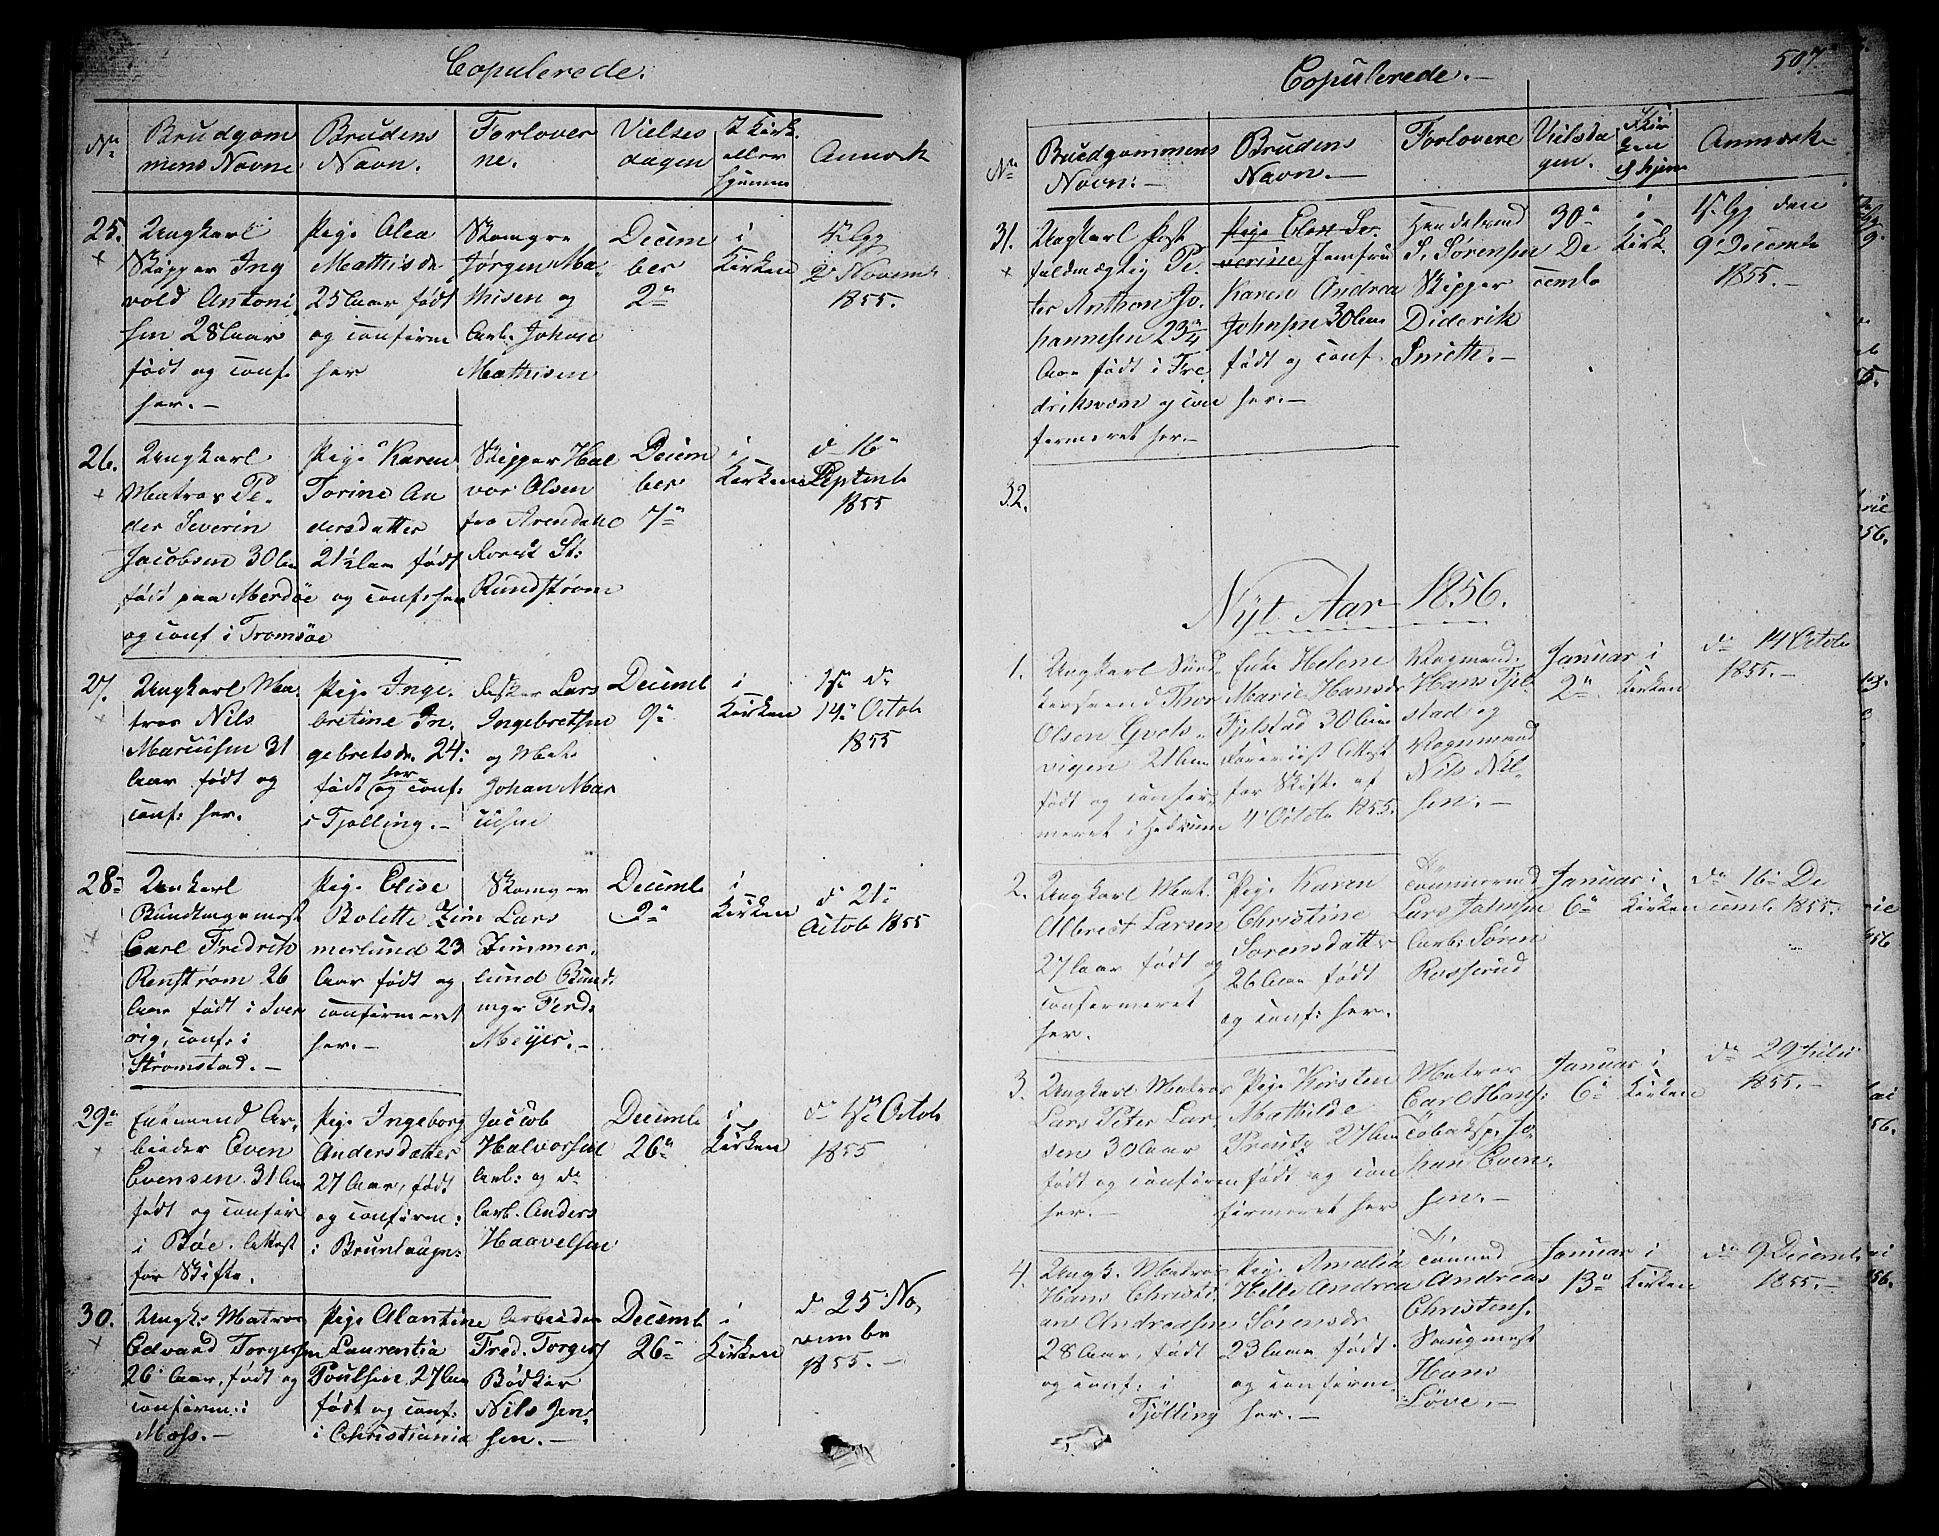 Copulerede.
No
Brudgom
mens Navne
Brudens
Navn.
Forlover
ne.
Vielses
dagen
I Kirk.
eller
hjemme
Anmærk
25.
Ungkarl
Skipper Ing
vold Antoni
sen 28 Aar
født og conf.
her.-
Pige Olea
Mathisdr
25 Aar født
og confirm
her
Skomgr
Jørgen Ma-
thisen og
Arb. Johan
Mathisen
Decem
ber
2n
i
Kirken
Novemb
1855.
26.
Ungkarl
Matros Pe-
der Severin
Jacobsen 30 Aar
født paa Merdøe
og conf. i Tromsøe
Pige Karen
Torine An
dersdatter
21½ Aar født
og conf: her
Skipper Hal
vor Olsen
fra Arendal og
St:
Rundstrøm
Decem
ber
7n
i
Kirken
d 16
Septemb
1855
27.
Ungkarl Ma-
tros Nils
Marcusen 31
Aar født og
conf: her.
Pige Inge-
bretine In-
gebretsdr. 24:
født her og conf:
i Tjølling.-
Fisker Lars
Ingebretsen
og Mats
Johan Mar
cusen
Decemb
9n
i
Kirken
14n Octob
1855
28
Unkarl
Bundtmagermest
Carl Fredrik
Renstrøm 26
Aar født i Sver
rig, conf: i
Strømstad.-
Pige Elise
Bolette Zim
merlund 23
Aar født og
confirmeret
her.-
Skomgr
Lars
Zimmer-
lund Bund-
mgr Ferd:
Meyer.-
Decemb
9n
i
Kirken
d 21
Octob 1855
29n
Enkemand Ar-
beider Even
Evensen 31 Aar
født og confir
i Bøe. Attest
for Skifte.
Pige Ingeborg
Andersdatter
27 Aar, født
og confirm:
i Brunlaugn:
Jacob
Halvorsen
Arb: og do
Arb. Anders
Haavelsen
Decemb
26n
i
Kirken
Octob
1855
30.
Ungk: Matros
Edvard Torgersen
26 Aar, født og
confirm: i
Moss.-
Pige Alantine
Laurentia
Poulsen, 27 Aar
født og conf:
i Christiania
Arbeider
Fred. Torgers
Bødker
Nils Jen-
sen.-
Decemb
26n
i
Kirken
d 25 No-
vembr
1855.-
Copulerede.-
507
No
Brudgommens
Navn.-
Brudens
Navn.-
Forlovere
Vielsda
gen.
I Kir
ken
el hjem
Anmærk
31.
Ungkarl Post
fuldmægtig Pe-
ter Anthon Jo-
hannesen 23¾
Aar født i Fre
driksværn og con
firmeret her.-
Pige Elen Se-
verine Jomfru
Karen Andrea
Johnsen 30 Aar
født og conf.
her.-
Handelsmd
S. Sørensen
Skipper
Diderik
Smith.-
30n
De
cemb
i
Kirk.
den
9n Decemb
1855.-
32.
Nyt Aar 1856.
1.
Ungkarl
Thor
Olsen
vigen 21 Aar
født og confir-
meret i Hedrum
Enke Helene
Marie Hansdr
Fjelstad 30 Aar
Attest
for Skifte af
4 Octob 1855.
Vognmand
Hans Fjel
stad og
Vognmand
Nils Nil-
sen.-
Januar
2n
i
Kirken
do 14 Octob
1855.-
2.
Ungkarl Mat.
Albrect Larsen
27 Aar født og
confirmeret
her.
Pige Karen
Christine
Sørensdatter
26 Aar født
og conf: her.
Tømmermd
Lars Johnsen
Arb: Søren
Rosserud
Januar
6n
i
Kirken
do 16n De
cemb. 1855.
3.
Ungkarl Matros
Lars Peter Lar-
sen 30 Aar
født og confirm
her.-
Pige Kirsten
Mathilde
27 Aar
født og con
firmeret her
Matros
Carl Hans:
Tobaksp. Jo-
han Even-
sen.-
Januar
6n
i
Kirken
do 29 Julii
1855.-
4.
Ungk. Matros
Hans Christi-
an Andreasen
28 Aar, født
og conf: i
Tjølling
Pige Amalia
Helle Andrea
Sørensdr
23 Aar født
og confirm
her.-
Tømmd
Andreas
Christens.
Hans
Løve.-
Januar
13n
i
Kirken
do 9 Decemb
1855.-